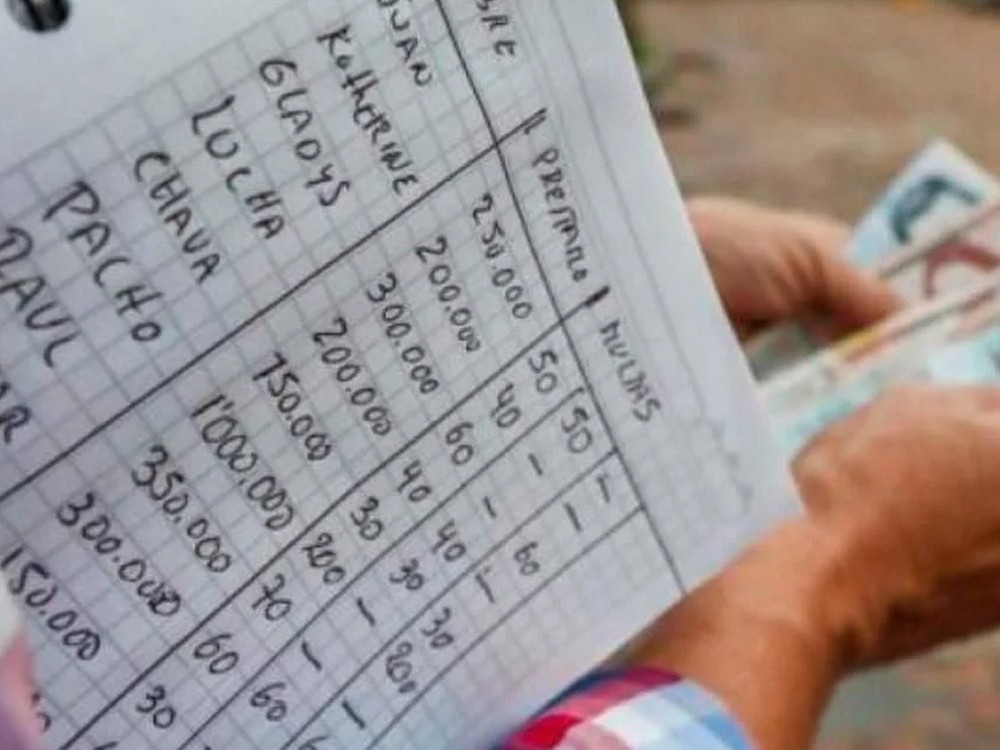 BRE PRESTAMO MULTAS
JUAN 250.000 50 50 –
KatHERINE 200.000 40 – –
GLADYS 300.000 60 – 60
LUCHA 200.000 40 40 –
CHAVA 150.000 30 30 30
PACHO 1'000.000 200 – 200
RAUL 350.000 70 – –
AR 300.000 60 60
150.000 30